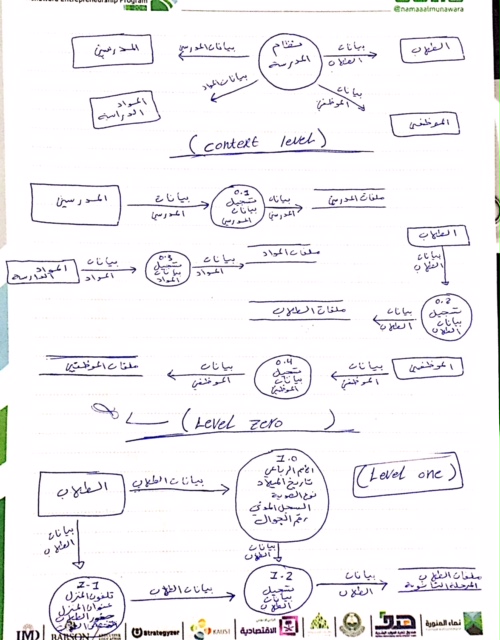 Entrepreneurship Program
@namaaalmunawara
المدرسين
بيانات المدرسين
نظام
المدرسة
بيانات
الطلاب
الطلاب
المواد
الدراسة
بيانات المواد
بيانات
الموظفين
الموظفين
(context level)
المدرسين
بيانات
المدرسين
0.1
تسجيل
بيانات
المدرسين
بيانات
المدرسين
ملفات المدرسين
الطلاب
بيانات
الطلاب
المواد
الدارسة
بيانات
المواد
0.3
تسجيل
بيانات
المواد
بيانات
المواد
ملفات المواد
0.2
تسجيل
بيانات
الطلاب
بيانات
الطلاب
ملفات الطلاب
الموظفين
بيانات
الموظفين
0.4
تسجيل
بيانات
الموظفين
بيانات
الموظفين
ملفات الموظفين
(Level zero)
(Level one)
الطلاب
بيانات الطلاب
1.0
تاريخ الميلاد
نوع الهوية
رقم الجوال
بيانات
الطلاب
بيانات
الطلاب
1-1
تلفون المنزل
عنوان المنزل
بيانات الطلاب
1-2
تسجيل
بيانات
الطلاب
بيانات
الطلاب
ملفات الطلاب
IMD
BABSON
Strategyzer
KAUST
الاقتصادية
هدف
نماء المنورة